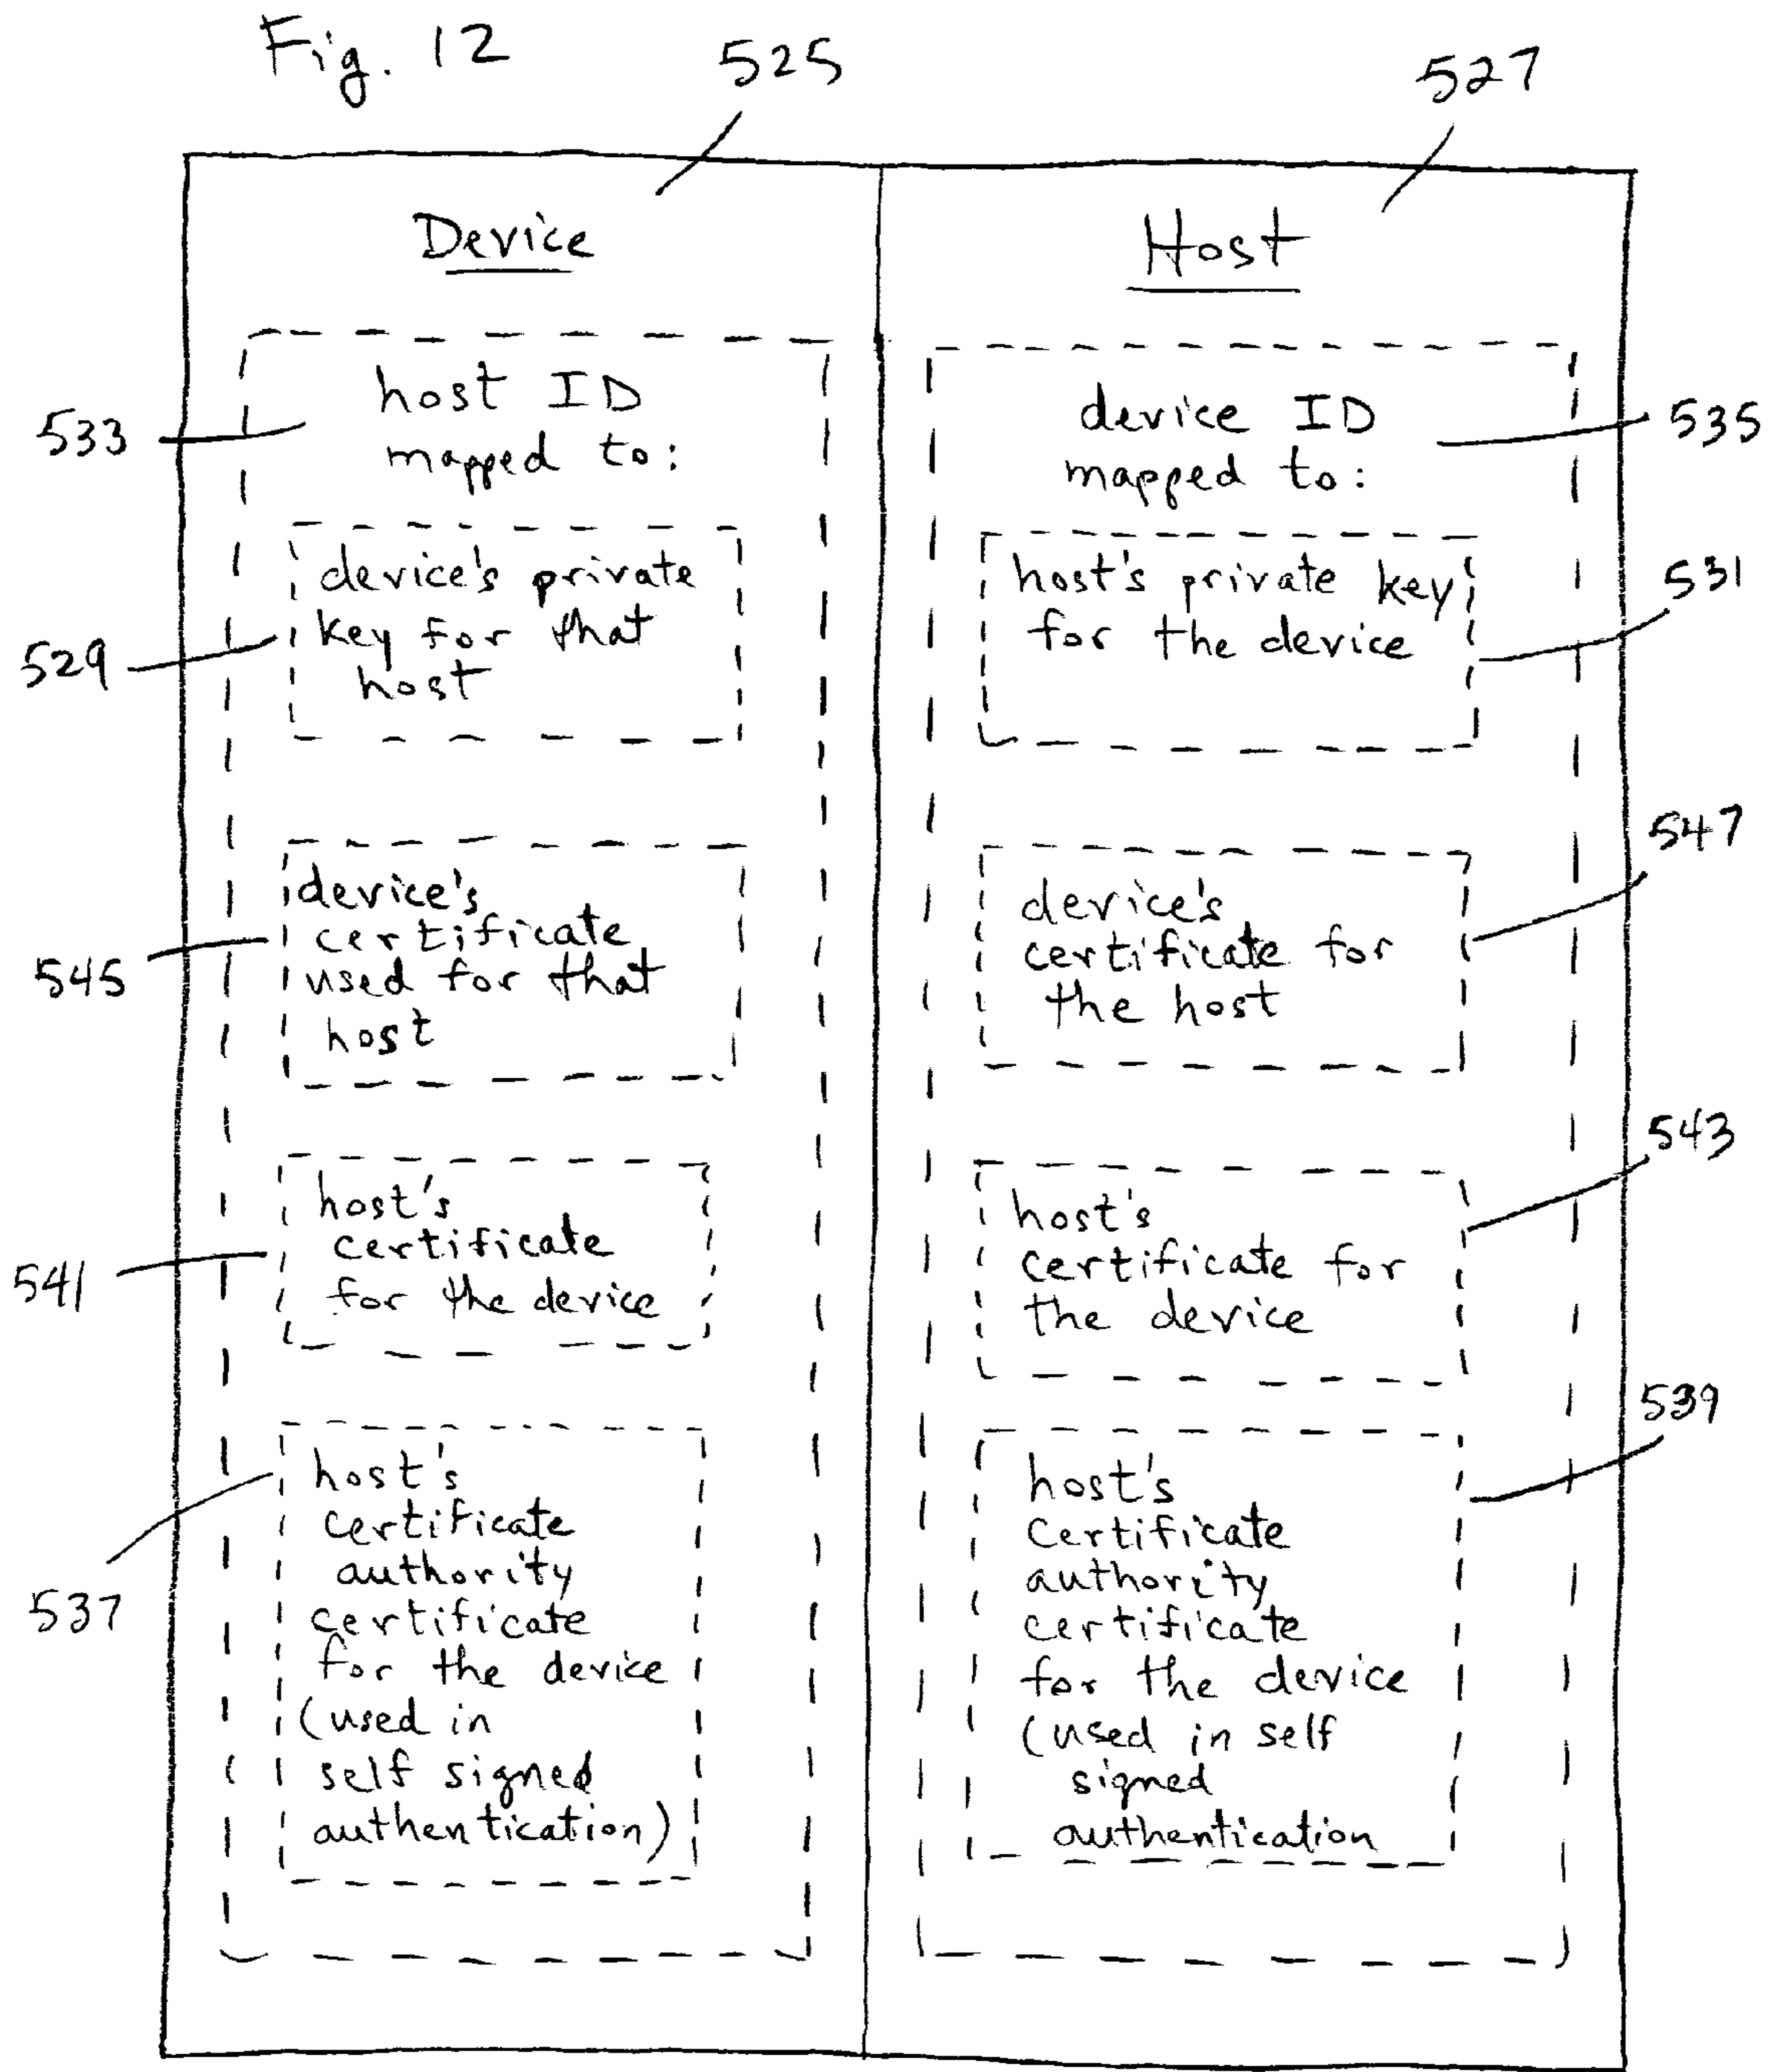 Fig. 12
525
527
Device
host ID
mapped to:
533
device's private
key for that
host
529
device's
certificate
used for that
host
545
host's
certificate
for the device
541
host's
certificate
authority
certificate
for the device
(used in
self signed
authentication)
537
Host
device ID
mapped to:
535
host's private key
for the device
531
device's
certificate for
the host
547
host's
certificate for
the device
543
host's
certificate
authority
certificate
for the device
(used in self
signed
authentication
539